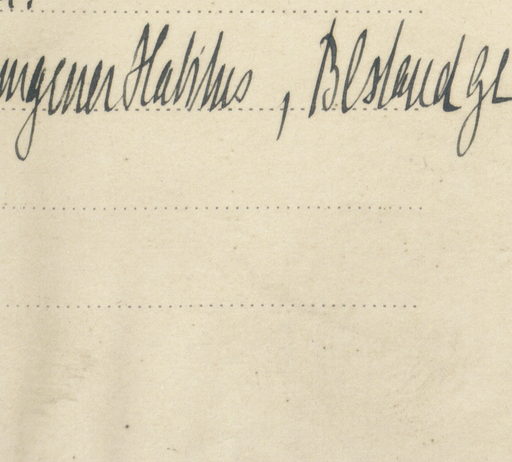 ungener Habitus, Bestand ge